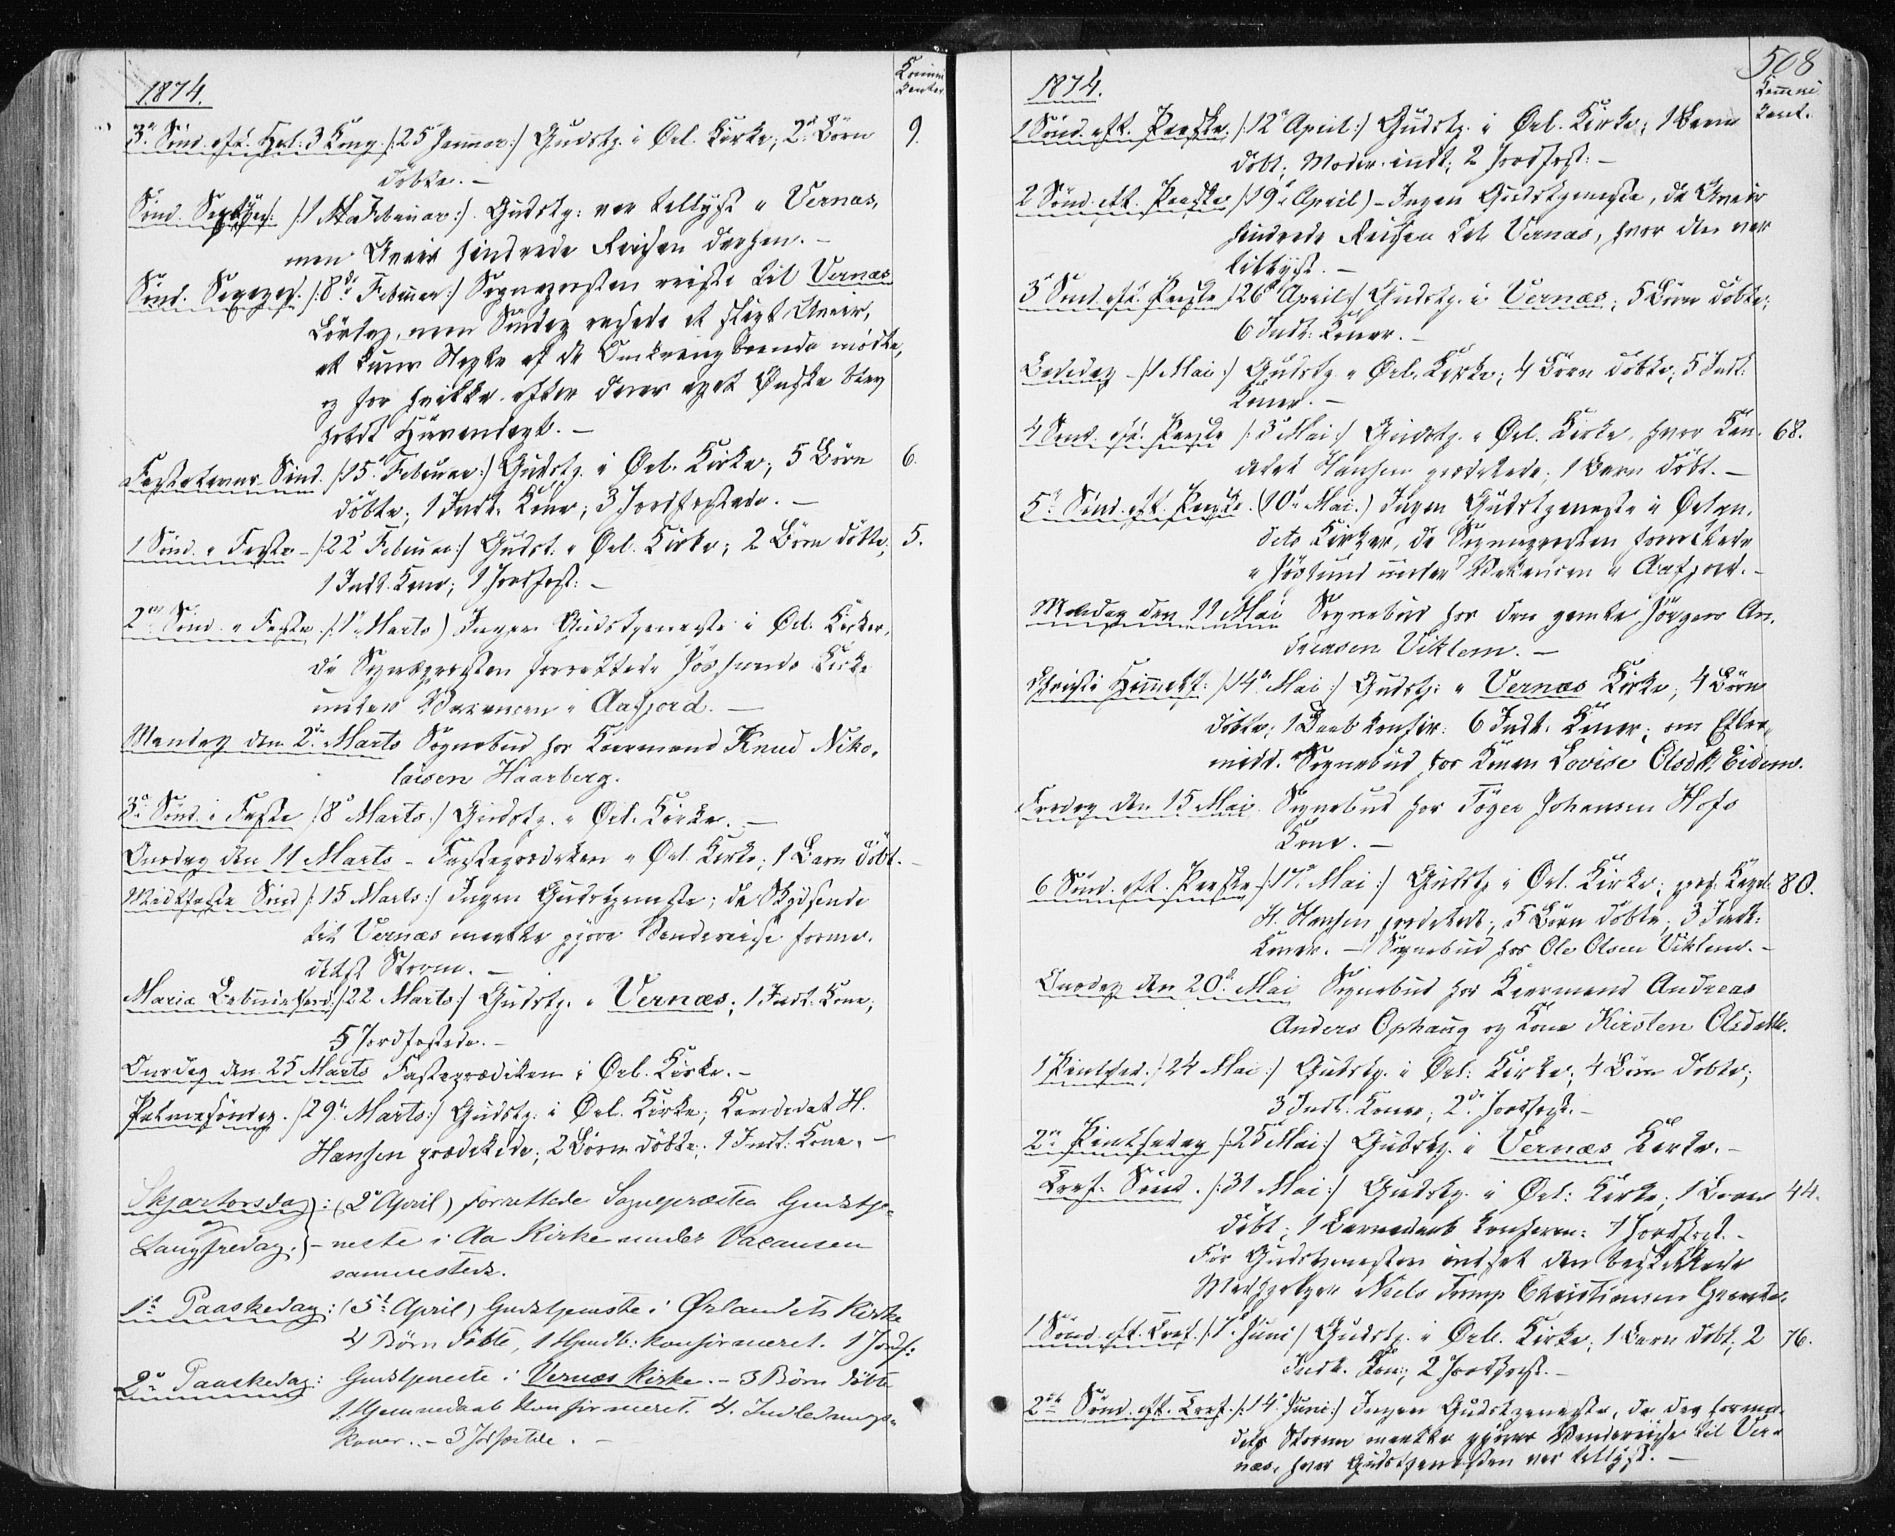 1874.
Kommunikanter
3die Sönd. eft. Hel. 3 Kong. /:25 Januar:/ Gudstj. i Örl. Kirke; 2de Börn 9.
döbte. –
Sönd. Septuages. /:1 Februar:/. Gudstj. var tillyst i Vernæs,
men Uveir hindrede Reisen derhen. –
Sönd. Sexages. /:8de Februar:/ Sognepresten reiste til Vernæs
Lördag, men Söndag rasede et sligt Uveir,
at kun Nogle af de Omkringboende mödte,
og for hvilke efter deres eget Önske blev
holdt Huusandagt. –
Fastelavns Sönd. /:15 Februar:/ Gudstj. i Örl. Kirke; 5 Börn 6.
döbte; 1 Indl. Kone; 3 Jordfæstede. –
1 Sönd. i Faste – /:22 Februar:/ Gudst. i Örl. Kirke; 2 Börn döbte; 5.
1 Indl. Kone; 1 Jordfæst: –
2den Sönd. i Faste /:1 Marts) Ingen Gudstjeneste i Örl. Kirker,
da Sognepresten forrettede Jössunds Kirke
under Vacancen i Aafjord. –
Mandag den 2de Marts Sognebud hos Kaarmand Knud Niko-
laisen Haarberg.
3die Sönd. i Faste /:8 Marts:/ Gudstj. i Örl. Kirke. –
Onsdag den 11 Marts – Fasteprædiken i Örl. Kirke; 1 Barn döbt. –
Midtfaste Sönd /:15 Marts:/ Ingen Gudstjeneste; da Skydsende
til Vernæs maatte gjöre Vendereise forme-
delst Storm. –
Mariæ Bebudelsesd. /:22 Marts:/ Gudstj. i Vernæs; 1 Indl. Kone;
5 Jordfæstede. –
Onsdag den 25 Marts Fasteprædiken i Örl. Kirke. –
Palmesöndag. /:29 Marts:/ Gudstj. i Örl. Kirke; Kandidat H.
Hansen prædikede; 2 Börn döbte; 1 Indl: Kone. –
Skjærtorsdag): (2 April) forrettede Sognepræsten Gudstje-
og
Langfredag:) – neste i Aa Kirke under Vacansen
sammesteds.
1ste Paaskedag: (5te April) Gudstjeneste i Ørlandets Kirke
4 Börn döbte, 1 Hjemdb: konfirmeret. 1 Jordf:
2den Paaskedag: Gudstjeneste i Vernæs Kirke. – 3 Börn döbte
1. Hjemmedaab konfirmeret. 4. Indlednings-
koner. – 3 Jordfæstede. –
508
1874.
Kommunikant.
1 Sönd. eft. Paaske. /:12 April:/ Gudstj. i Örl. Kirke; 1 Barn
döbt; Moder indl; 2 Jordfæst: –
2 Sönd. eft. Paaske /:19 April) – Ingen Gudstjeneste, da Uveir
hindrede Reisen til Vernæs, hvor den var
tillyst. –
3 Sönd. eft. Paaske /:26 April:/ Gudstj. i Vernæs; 5 Börn döbte;
6 Indl: Koner. –
Bededag – /:1 Mai:/ Gudstj. i Örl. Kirke; 4 Börn döbte; 5 Indl:
Koner. –
4 Sönd. eft. Paaske /:3 Mai:/ Gudstj. i Örl. Kirke, hvor Kan- 68.
didat Hansen prædikede; 1 Barn döbt. –
5te Sönd. eft. Paaske. (10 Mai.) Ingen Gudstjeneste i Örlan-
dets Kirker, da Sognepresten forrettede
i Jössund under Vakancen i Aafjord. –
Mandag den 11 Mai Sognebud hos den gamle Jörgen An-
dreasen Viklem. –
Christi Himmelf: /:14 Mai:/ Gudstj: i Vernæs Kirke; 4 Börn
döbte; 1 Daab konfir: 6 Indl. Koner; om Efter-
midd. Sognebud hos Konen Lovise Olsdtr. Eidem.
Fredag den 15 Mai. Sognebud hos Töger Johansen Hofs
Kone. –
6 Sönd. eft. Paaske /:17 Mai:/ Gudstj. i Örl. Kirke; pers. Kapel. 80.
H. Hansen prædikede; 5 Börn döbte; 3 Indl:
Koner. – Sognebud hos Ole Olsen Viklem. –
Onsdag den 20 Mai Sognebud hos Kaarmand Andreas
Anders Ophaug og Kone Kirsten Olsdattr.
1 Pintsed. /:24 Mai:/ Gudstj. i Örl: Kirke; 4 Börn döbte;
3 Indl. Koner; 2de Jordfæst. –
2den Pintsedag /:25 Mai:/ Gudstj. i Vernæs Kirke. –
Tref. Sönd. /:31 Mai:/ Gudstj. i Örl: Kirke; 1 Barn 44.
döbt; 1 Barnedaab konfirm: 1 Jordfæst. –
Før Gudstjenesten indsat den beskikkede
Medhjelper Niels Trump Christiansen
1 Sönd. eft. Tref. /:7 Juni/ Gudstj. i Örl. Kirke; 1 Barn döbt; 2 76.
Indl. Kon; 2 Jordfæst. –
2den Sönd. eft. Tref. /:14 Juni:/ Ingen Gudstjeneste, da deg forme-
delst Storm maatte gjöres Vendereise til Ver-
næs, hvor Gudstjenesten var tillyst. –